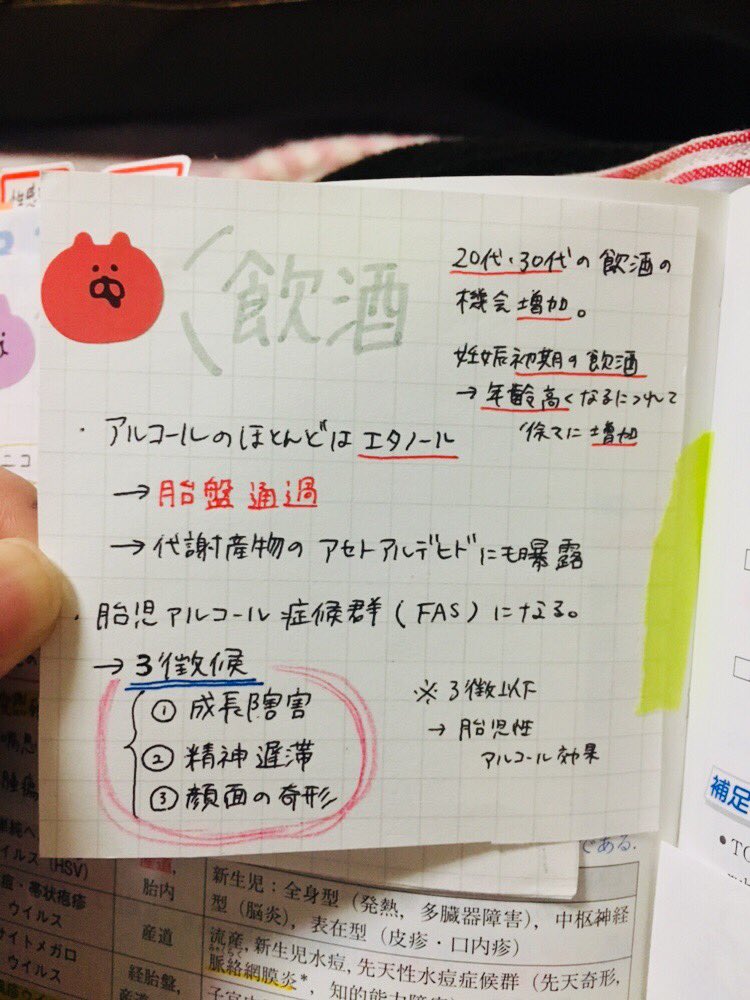 飲酒
20代・30代の飲酒の
機会増加。
妊娠初期の飲酒
→年齢高くなるにつれて
徐々に増加
・アルコールのほとんどはエタノール
→胎盤通過
→代謝産物のアセトアルデヒドにも曝露
・胎児アルコール症候群(FAS)になる。
→3徴候
①成長障害
②精神遅滞
③顔面の奇形
※3徴以下
→胎児性
アルコール効果
補足
である.
ウイルス(HSV)
胎内
新生児:全身型(発熱,多臓器障害),中枢神経
型(脳炎),表在型(皮疹・口内疹)
痘・帯状疱疹
ウイルス
産道
流産,新生児水痘,先天性水痘症候群(先天奇形,
サイトメガロ
経胎盤,
脈絡網膜炎*,知的能力障害